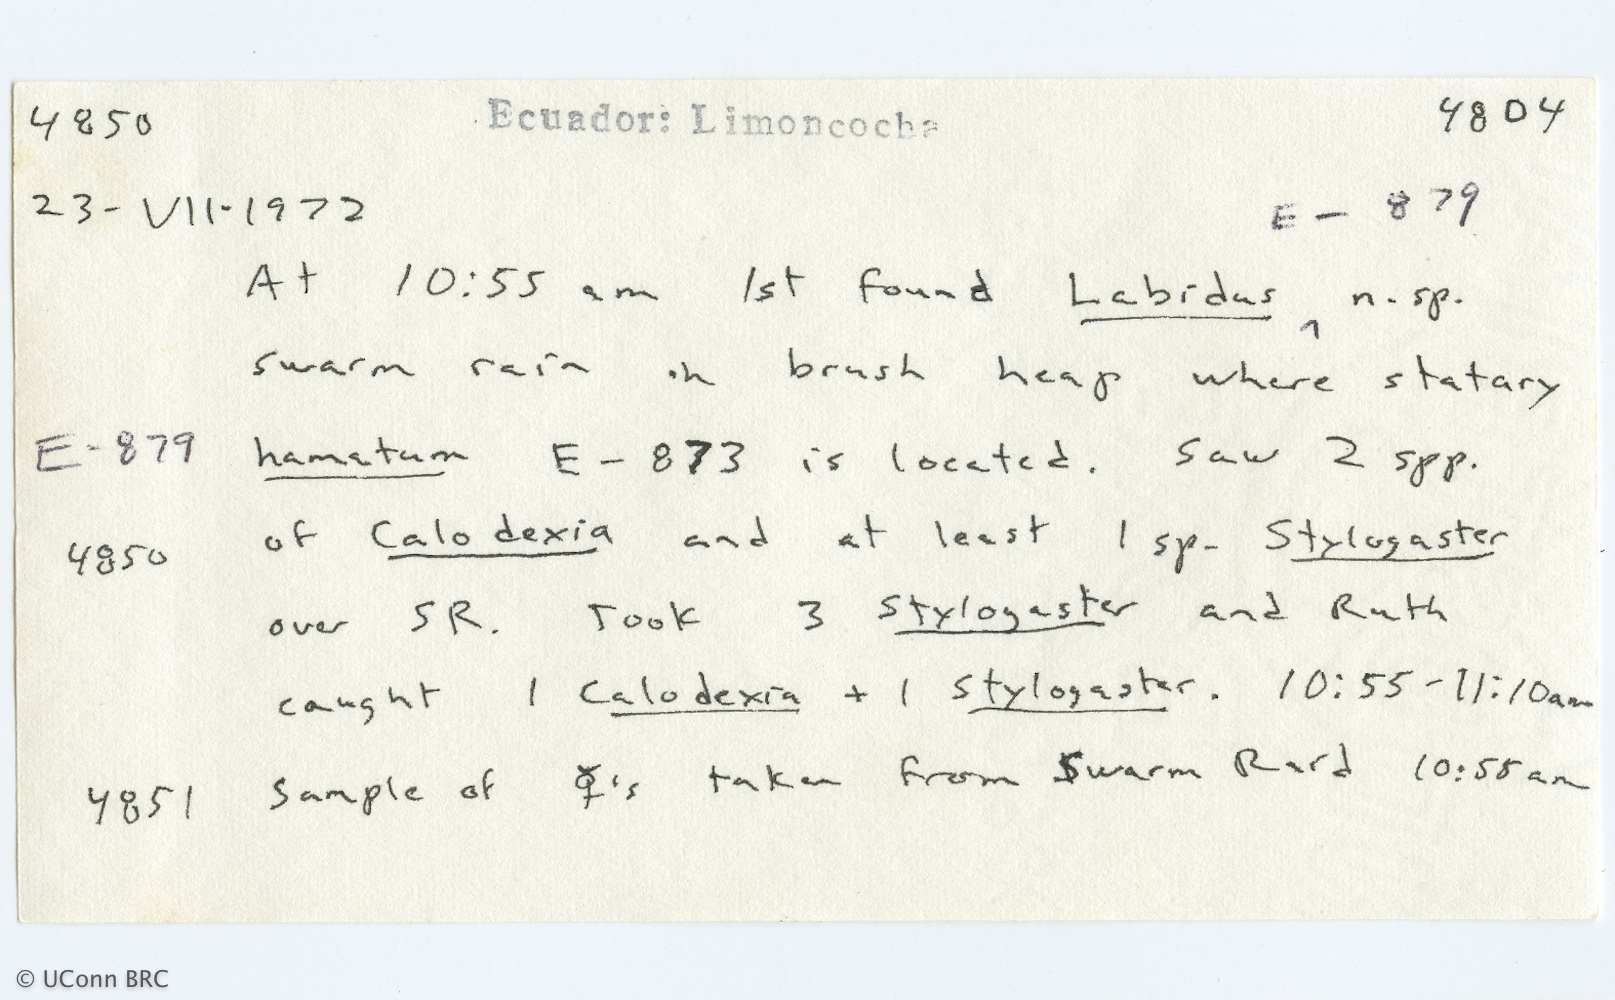 4850 Ecuador: Limoncocha 4804
23-VII-1972 E-879
At 10:55 am 1st found Labidus ^ n.sp.
swarm rain in brush heap where statary
E-879 hamatum E-873 is located. Saw 2 spp.
4850 of Calodexia and at least 1 sp. Stylogaster
over SR. Took 3 Stylogaster and Ruth
caught 1 Calodexia + 1 Stylogaster. 10:55-11:10am
4851 Sample of ☿'s taken from Swarm Rard 10:55 am
© UConn BRC